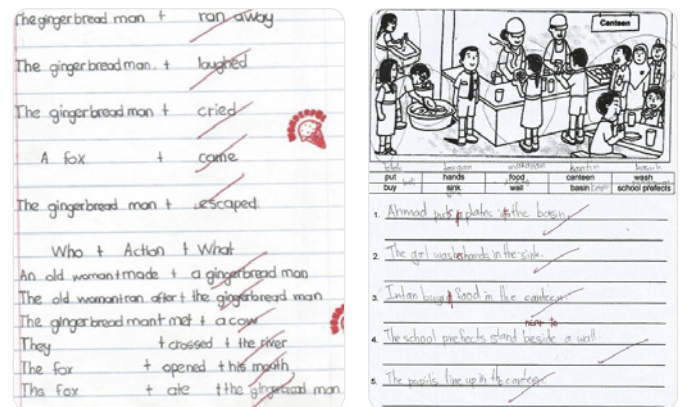 The gingerbread man + ran away
The gingerbread man. + laughed
The gingerbread man + cried
A fox + came
The gingerbread man + escaped.
Who + Action + What
An old woman + made + a gingerbread man
The old woman + ran after + the gingerbread man
The gingerbread man + met + a cow
They + crossed + the river
The fox + opened + his mouth,
The fox + ate + the gingerbread man
Canteen
put hands food canteen wash
buy sink wall basin school prefects
1. Ahmad puts plates in the basin.
2. The girl washes hands in the sink.
3. Intan buys food in the canteen.
next to
4. The school prefects stand beside a wall.
5. The pupils line up in the canteen.